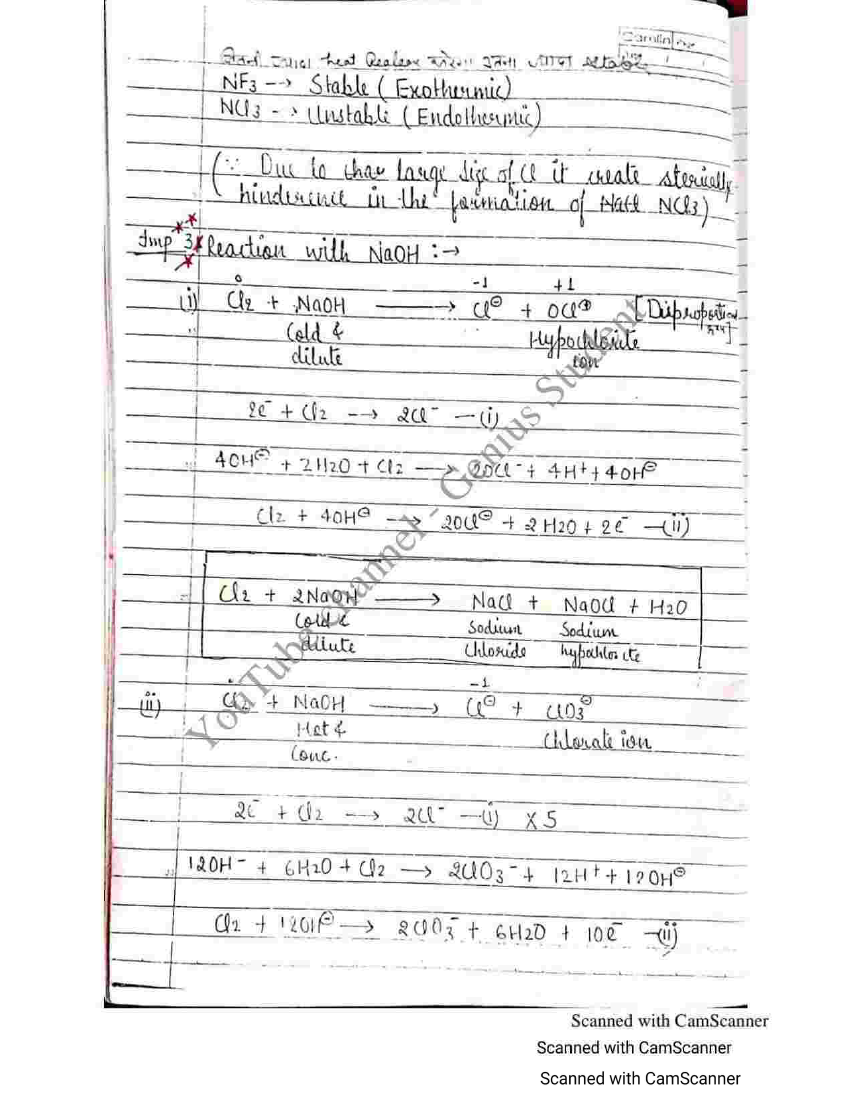 जितनी ज्यादा heat Realese करेगा उतना ज्यादा stable
NF3 --> Stable ( Exothermic)
NCl3 --> Unstable ( Endothermic)
(∵ Due to large size of Cl it create sterically
hinderence in the formation of NCl3)
Imp 3 Reaction with NaOH :→
0 -1 +1
(i) Cl2 + NaOH ⟶ Cl⊖ + OCl⊕ [Disproportion
Cold & Hypochlorite
dilute ion
2e⁻ + Cl2 ⟶ 2Cl⁻ —(i)
4OH⊖ + 2H2O + Cl2 ⟶ 2OCl⁻ + 4H⁺ + 4OH⊖
Cl2 + 4OH⊖ ⟶ 2OCl⊖ + 2H2O + 2e⁻ —(ii)
Cl2 + 2NaOH ⟶ NaCl + NaOCl + H2O
Cold & Sodium Sodium
dilute Chloride hypochlorite
-1
(ii) Cl2 + NaOH ⟶ Cl⊖ + ClO3⊖
Hot & Chlorate ion
Conc.
2e⁻ + Cl2 ⟶ 2Cl⁻ —(i) X 5
12OH⁻ + 6H2O + Cl2 ⟶ 2ClO3⁻ + 12H⁺ + 12OH⊖
Cl2 + 12OH⊖ ⟶ 2ClO3⁻ + 6H2O + 10e⁻ —(ii)
YouTube channel - Genius Student
Scanned with CamScanner
Scanned with CamScanner
Scanned with CamScanner